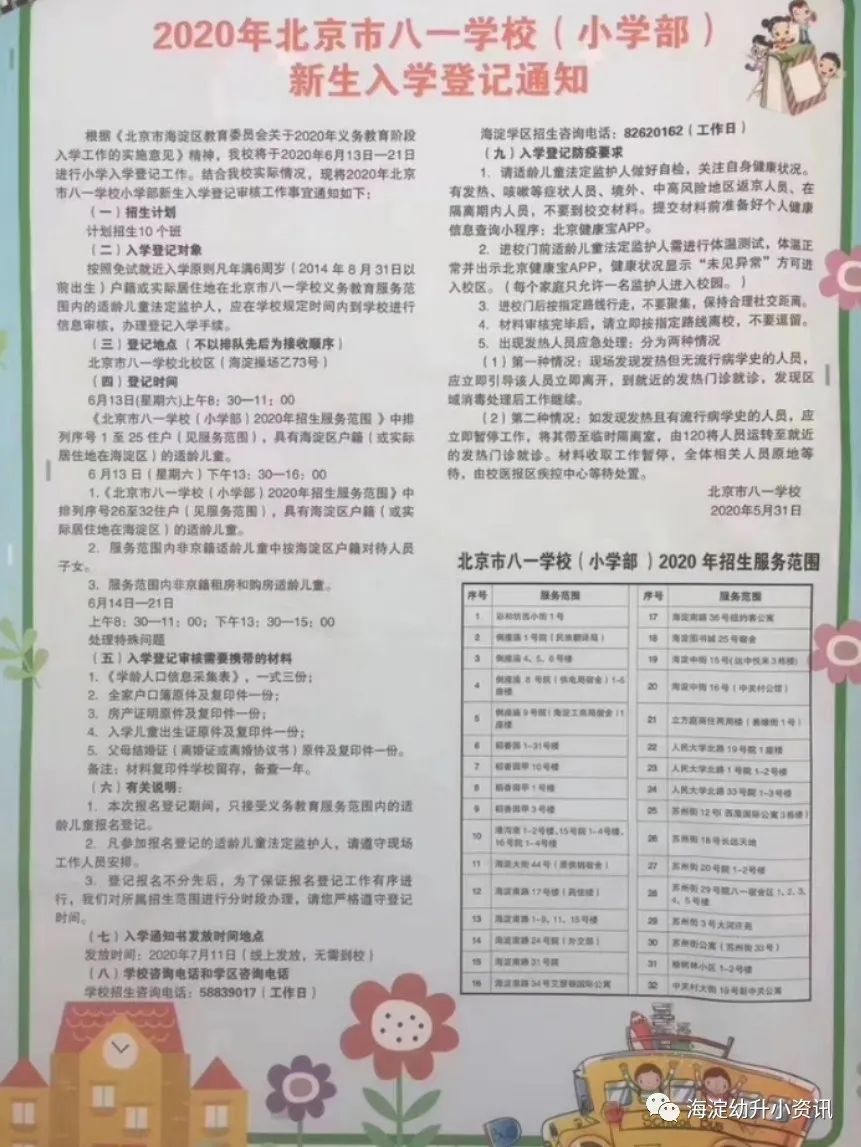 2020年北京市八一学校（小学部）
新生入学登记通知
根据《北京市海淀区教育委员会关于2020年义务教育阶段
入学工作的实施意见》精神，我校将于2020年6月13日—21日
进行小学入学登记工作。结合我校实际情况，现将2020年北京
市八一学校小学部新生入学登记审核工作事宜通知如下：
（一）招生计划
计划招生10个班
（二）入学登记对象
按照免试就近入学原则凡年满6周岁（2014年8月31日以
前出生）户籍或实际居住地在北京市八一学校义务教育服务范
围内的适龄儿童法定监护人，应在学校规定时间内到学校进行
信息审核，办理登记入学手续。
（三）登记地点（不以排队先后为接收顺序）
北京市八一学校北校区（海淀操场乙73号）
（四）登记时间
6月13日(星期六)上午8：30—11：00
《北京市八一学校（小学部）2020年招生服务范围》中排
列序号1至25住户（见服务范围），具有海淀区户籍（或实际
居住地在海淀区）的适龄儿童。
6月13日（星期六）下午13：30—16：00
1.《北京市八一学校（小学部）2020年招生服务范围》中
排列序号26至32住户（见服务范围），具有海淀区户籍（或实
际居住地在海淀区）的适龄儿童。
2．服务范围内非京籍适龄儿童中按海淀区户籍对待人员
子女。
3．服务范围内非京籍租房和购房适龄儿童。
6月14日—21日
上午8：30—11：00；下午13：30—15：00
处理特殊问题
（五）入学登记审核需要携带的材料
1.《学龄人口信息采集表》，一式三份；
2．全家户口簿原件及复印件一份；
3．房产证明原件及复印件一份；
4．入学儿童出生证原件及复印件一份；
5．父母结婚证（离婚证或离婚协议书）原件及复印件一份。
备注：材料复印件学校留存，备查一年。
（六）有关说明：
1．本次报名登记期间，只接受义务教育服务范围内的适
龄儿童报名登记。
2．凡参加报名登记的适龄儿童法定监护人，请遵守现场
工作人员安排。
3．登记报名不分先后，为了保证报名登记工作有序进
行，我们对所属招生范围进行分时段办理，请您严格遵守登记
时间。
（七）入学通知书发放时间地点
发放时间：2020年7月11日（线上发放，无需到校）
（八）学校咨询电话和学区咨询电话
学校招生咨询电话：58839017（工作日）
海淀学区招生咨询电话：82620162（工作日）
（九）入学登记防疫要求
1．请适龄儿童法定监护人做好自检，关注自身健康状况。
有发热、咳嗽等症状人员、境外、中高风险地区返京人员、在
隔离期内人员，不要到校交材料。提交材料前准备好个人健康
信息查询小程序：北京健康宝APP。
2．进校门前适龄儿童法定监护人需进行体温测试，体温正
常并出示北京健康宝APP，健康状况显示“未见异常”方可进
入校区。（每个家庭只允许一名监护人进入校园。）
3．进校门后按指定路线行走，不要聚集，保持合理社交距离。
4．材料审核完毕后，请立即按指定路线离校，不要逗留。
5．出现发热人员应急处理：分为两种情况
（1）第一种情况：现场发现发热但无流行病学史的人员，
应立即引导该人员立即离开，到就近的发热门诊就诊，发现区
域消毒处理后工作继续。
（2）第二种情况：如发现发热且有流行病学史的人员，应
立即暂停工作，将其带至临时隔离室，由120将人员运转至就近
的发热门诊就诊。材料收取工作暂停，全体相关人员原地等
待，由校医报区疾控中心等待处置。
北京市八一学校
2020年5月31日
北京市八一学校（小学部）2020年招生服务范围
序号 服务范围 序号 服务范围
1 彩和坊西小街1号 17 海淀南路36号纽约客公寓
2 倒座庙1号院（民族翻译局） 18 海淀图书城25号宿舍
3 倒座庙4、5、6号楼 19 海淀中街15号(远中悦来3栋楼)
4 倒座庙8号院（供电局宿舍）1-5座楼 20 海淀中街16号（中关村公馆）
5 倒座庙9号院（海淀工商局宿舍）1座楼 21 立方庭商住两用楼（善缘街1号）
6 稻香园1-31号楼 22 人民大学北路19号院1座楼
7 稻香园甲10号楼 23 人民大学北路1号院1-2号楼
8 稻香园甲1号楼 24 人民大学北路33号院1-3号楼
9 稻香园甲3号楼 25 苏州街12号(西屋国际公寓3栋楼)
10 港沟南1-2号楼、15号院1-4号楼、16号院1-4号楼 26 苏州街18号长远天地
11 海淀大街44号 27 苏州街20号院1-2号楼
12 海淀南路17号楼 28 苏州街29号院八一宿舍区1、2、3、4、5号楼
13 海淀南路1-9、11、15号楼 29 苏州街3号大河庄苑
14 海淀南路24号院（外交部） 30 苏州街公寓（苏州街33号）
15 海淀南路31号院 31 榆树林小区1-2号楼
16 海淀南路34号艾瑟顿国际公寓 32 中关村大街19号新中关公寓
海淀幼升小资讯